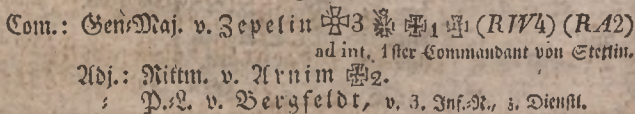 Com.: Gen-Maj. v. Zepelin ✠3 ✠1 (RIV4) (RA2)
ad int. 1ster Commandant von Stettin.
Adj.: Rittm. v. Arnim ✠2.
: P.-L. v. Bergfeldt, v. 3. Inf.-R., z. Dienstl.